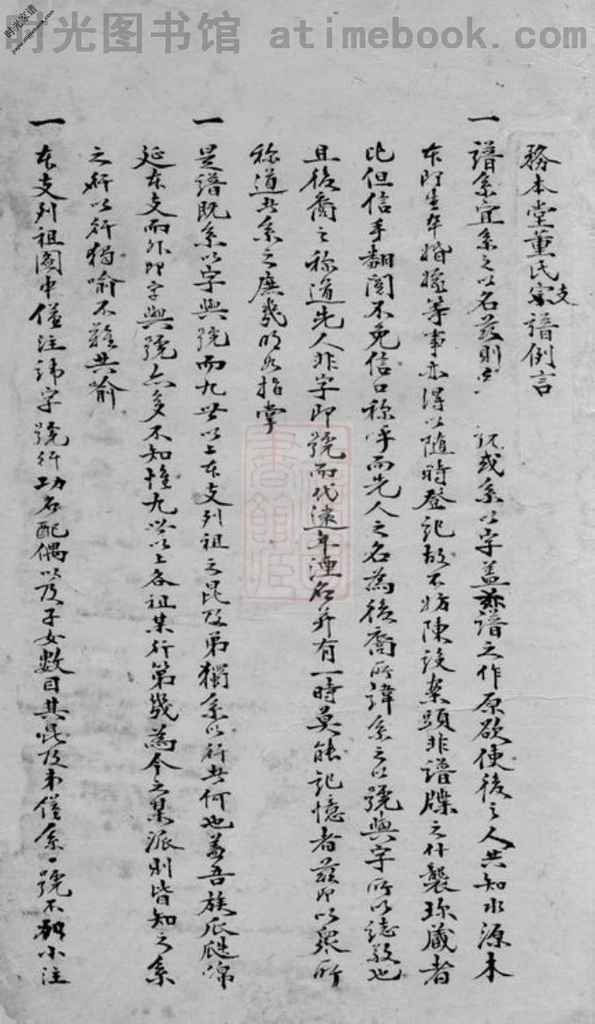 时光图书馆 atimebook.com
時光家譜
務本堂董氏宗支譜例言
一 譜系宜系之以名茲則 或系以字盖茲譜之作原欲使後之人共知水源木
本即生卒婚嫁等事亦得以随時登記故不妨陳設案頭非譜牒之什襲珍藏者
比但信手翻閱不免信口称呼而先人之名為後裔所諱系之以號與字所以誌敬也
且後裔之称道先人非字即號而代遠年湮名并有一時莫能記憶者茲即以眾所
称道者系之庶幾明如指掌
一 是譜既系以字與號而九世以上本支列祖之昆及弟獨系以行者何也盖吾族瓜瓞綿
延本支而外即字與號亦多不知惟九世以上各祖某行第幾為今之某派則皆知之系
之以行猶喻不難共喻
一 本支列祖圖中僅注諱字號行功名配偶以及子女數目其昆及弟僅系 號不 小注